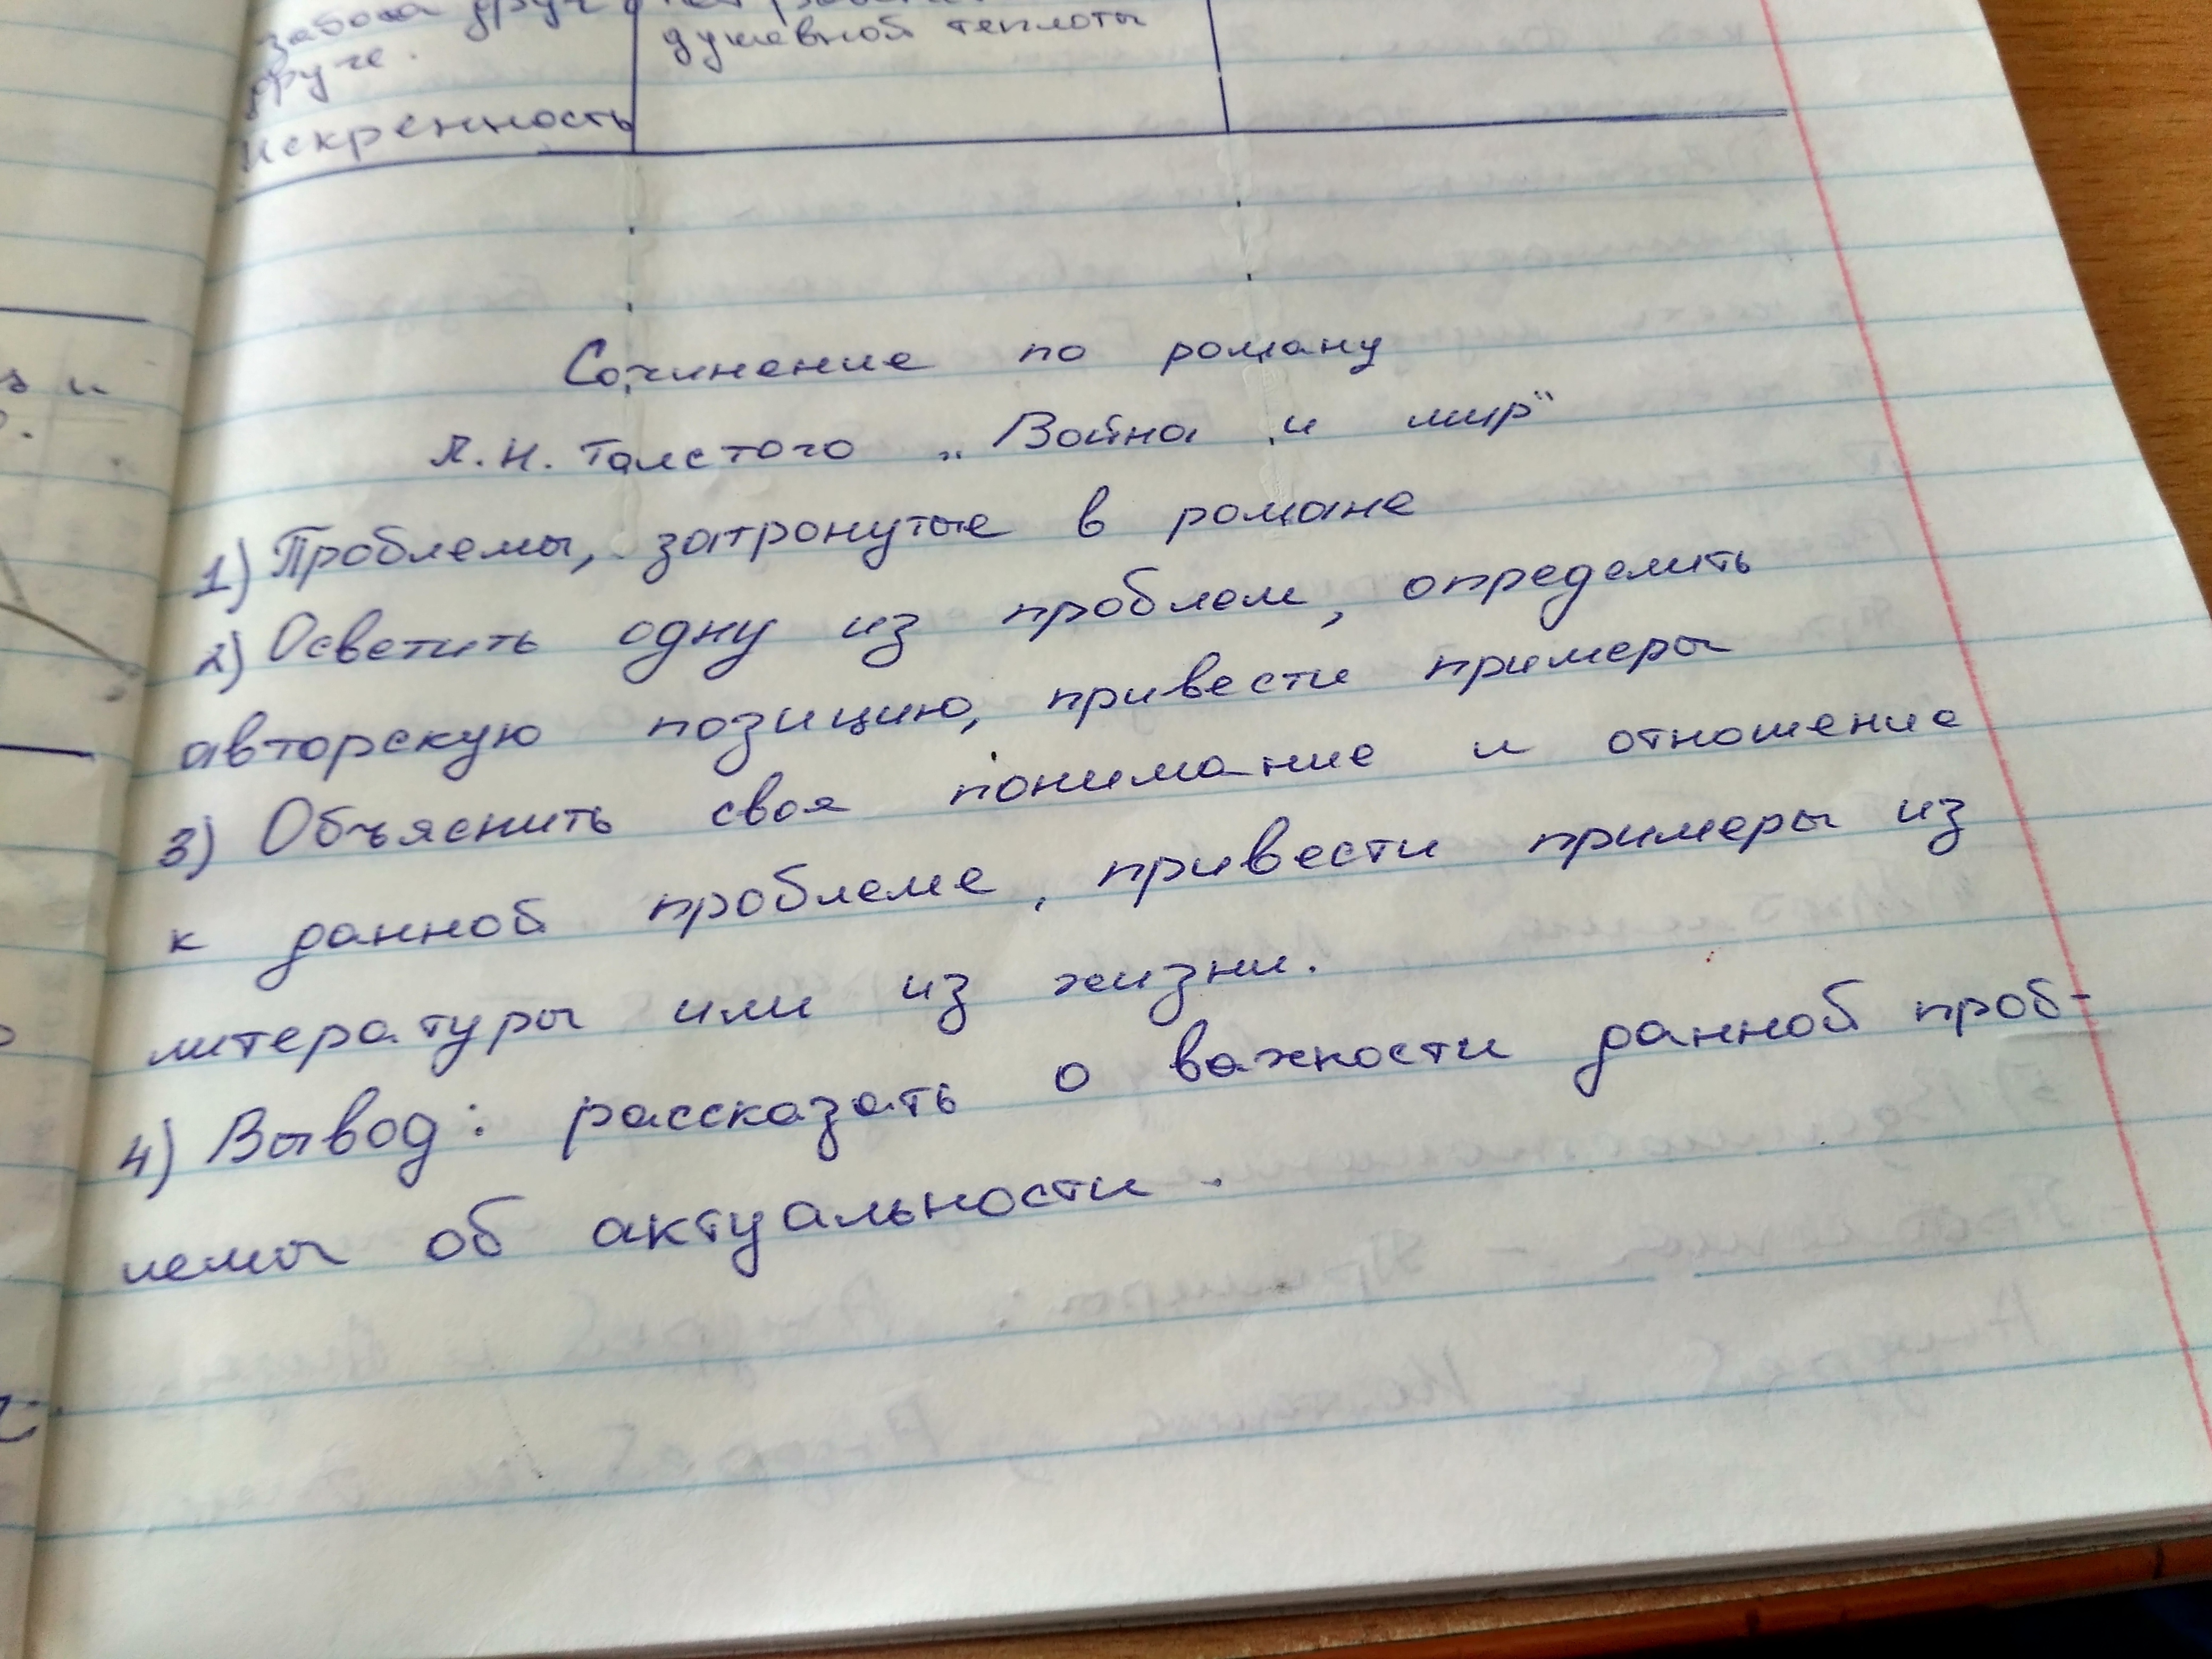 забота друг
друге.
душевной теплоты
искренность
Сочинение по роману
Л.Н. Толстого „Война и мир“
1) Проблемы, затронутые в романе
2) Осветить одну из проблем, определить
авторскую позицию, привести примеры
3) Объяснить свое понимание и отношение
к данной проблеме, привести примеры из
литературы или из жизни.
4) Вывод: рассказать о важности данной проб-
лемы об актуальности.